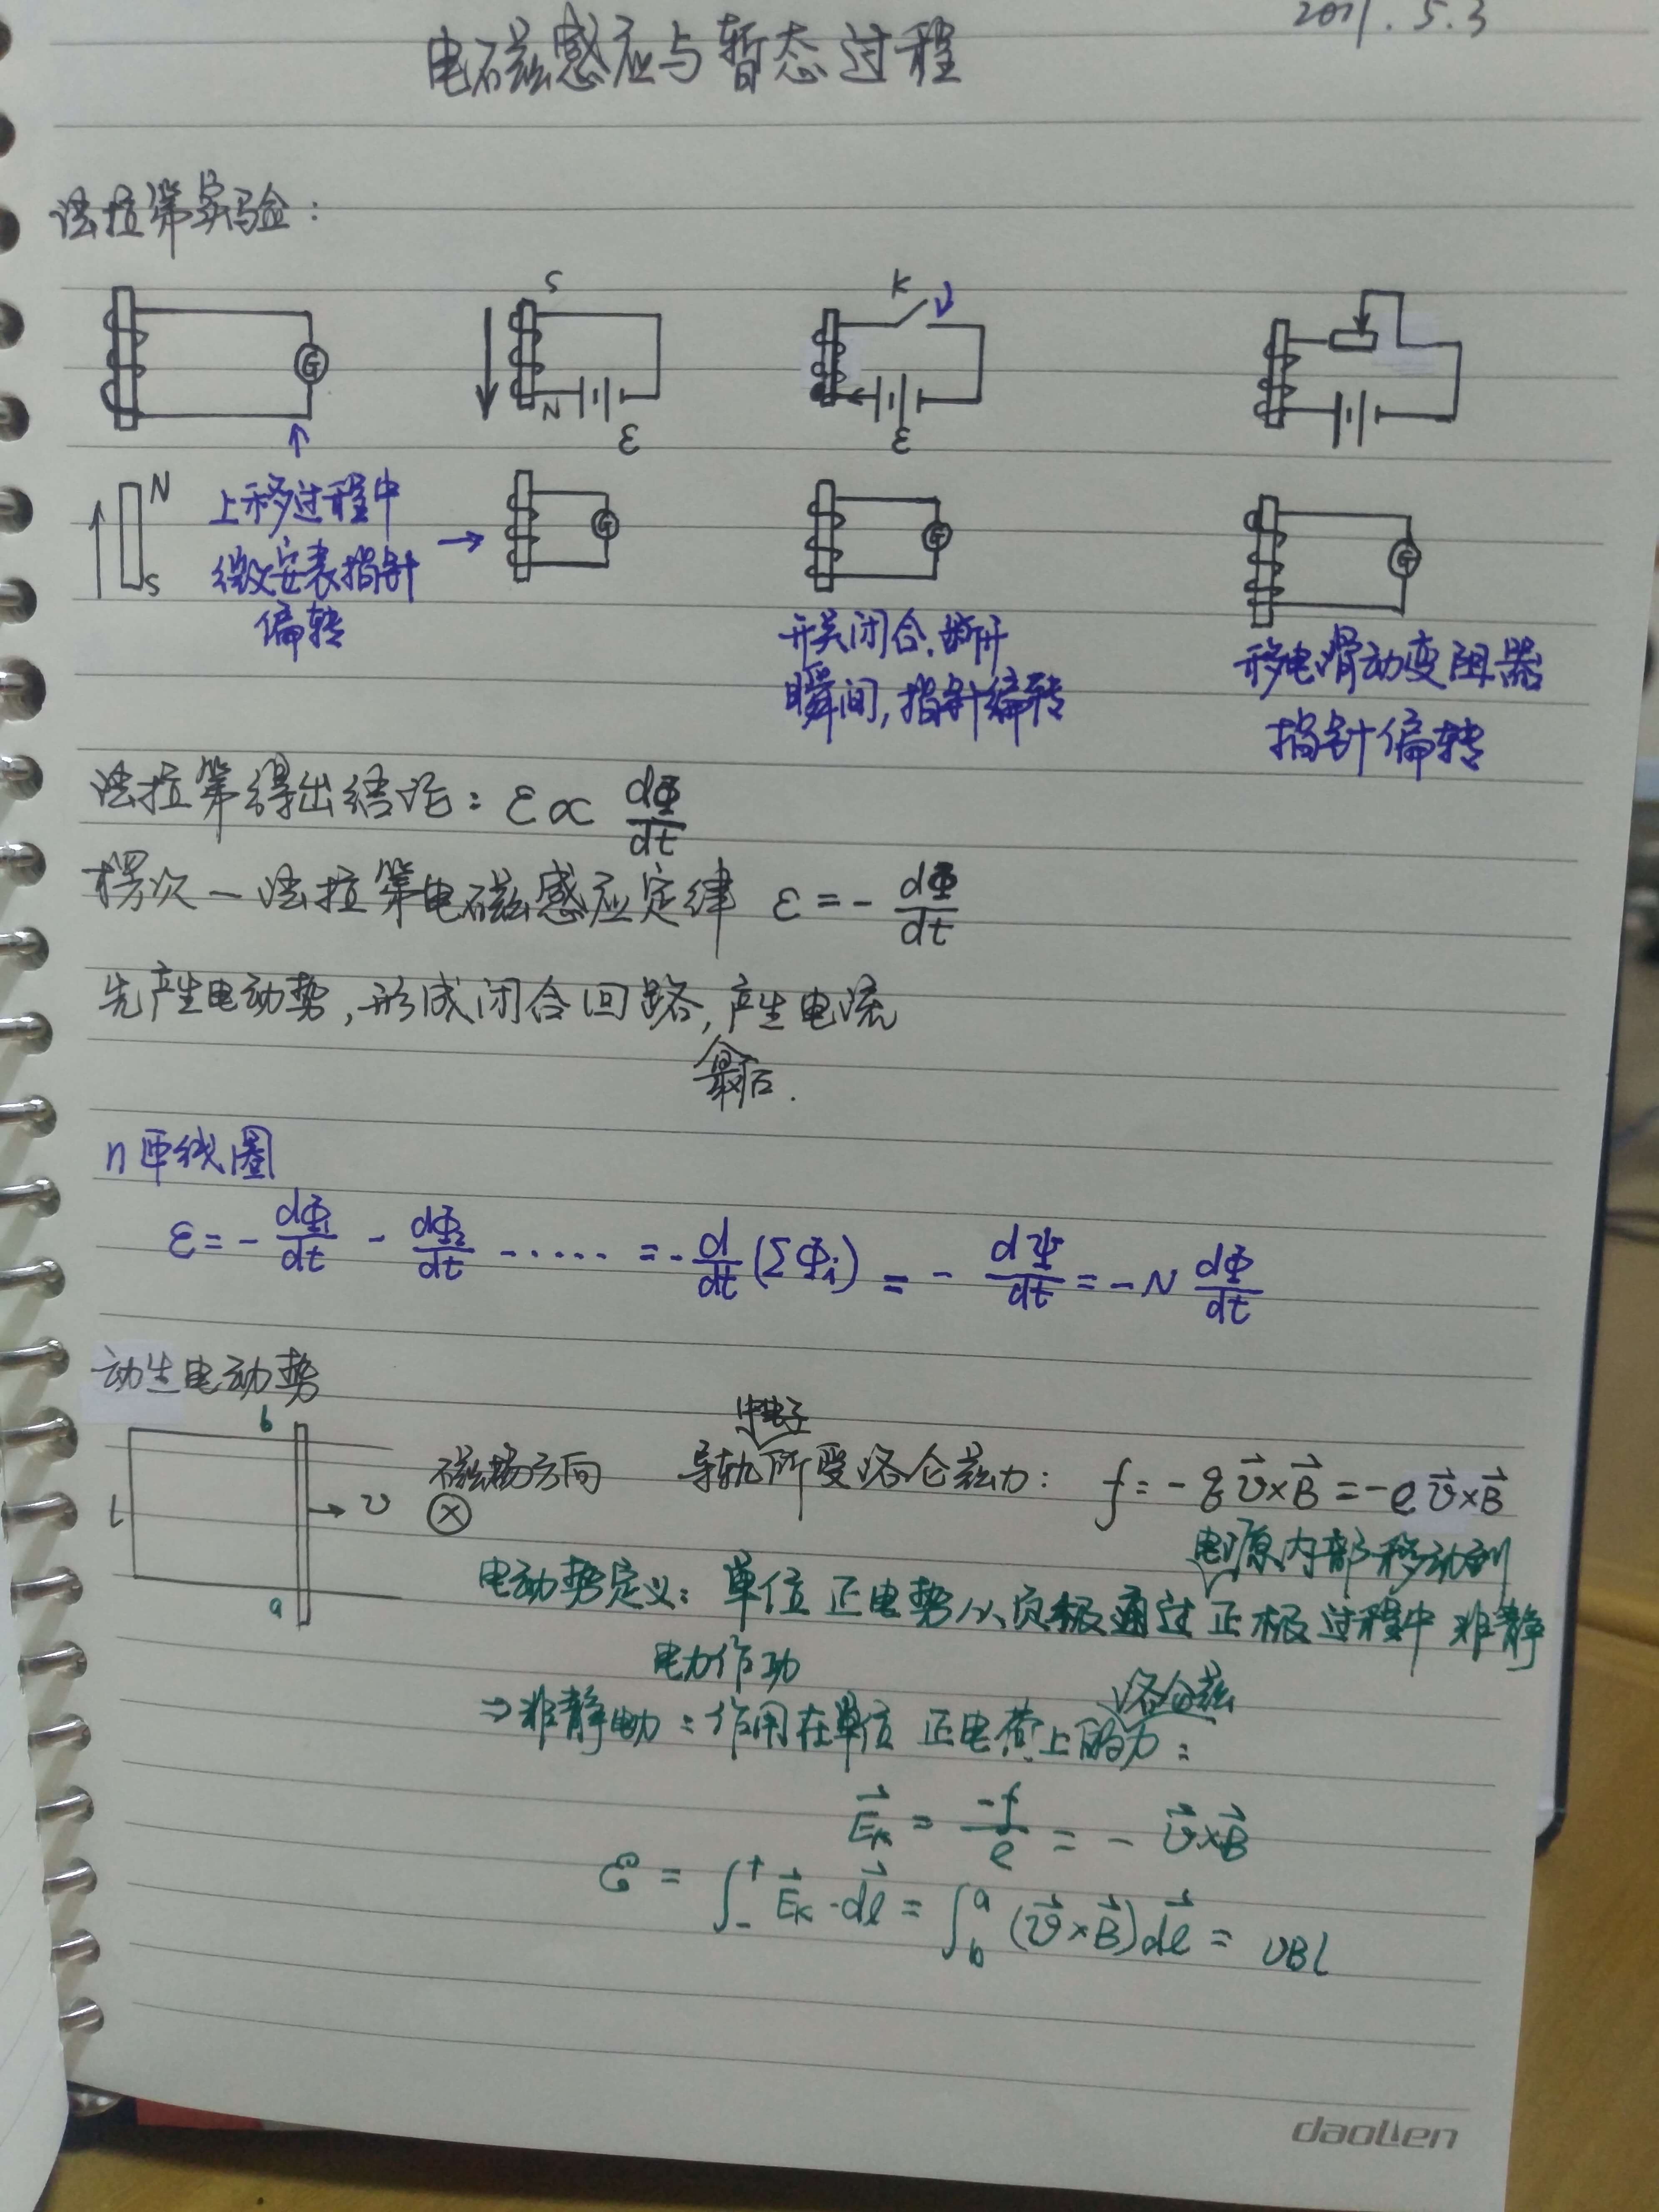 2021.5.3
电磁感应与暂态过程
法拉第实验：
G
S
N
ε
K
ε
N
S
上移过程中
微安表指针
偏转
G
G
G
开关闭合，断开
瞬间，指针偏转
移电滑动变阻器
指针偏转
法拉第得出结论：ε∝ dΦ/dt
楞次—法拉第电磁感应定律 ε=- dΦ/dt
先产生电动势，形成闭合回路，产生电流
最后.
n匝线圈
ε=- dΦ₁/dt - dΦ₂/dt ······ =- d/dt (ΣΦᵢ) = - dψ/dt = -N dΦ/dt
动生电动势
b
l
a
υ
磁场方向
⊗
中电子
导轨所受洛仑兹力： f=-q υ⃗×B⃗=-e υ⃗×B⃗
电源内部移动到
电动势定义：单位正电势从负极通过正极过程中非静
电力作功
洛仑兹
⇒非静电力：作用在单位正电荷上的力：
E⃗ₖ = -f⃗/e = - υ⃗×B⃗
ℰ = ∫₋⁺ E⃗ₖ·dl⃗ = ∫_b^a (υ⃗×B⃗)dl⃗ = υBl
daolien